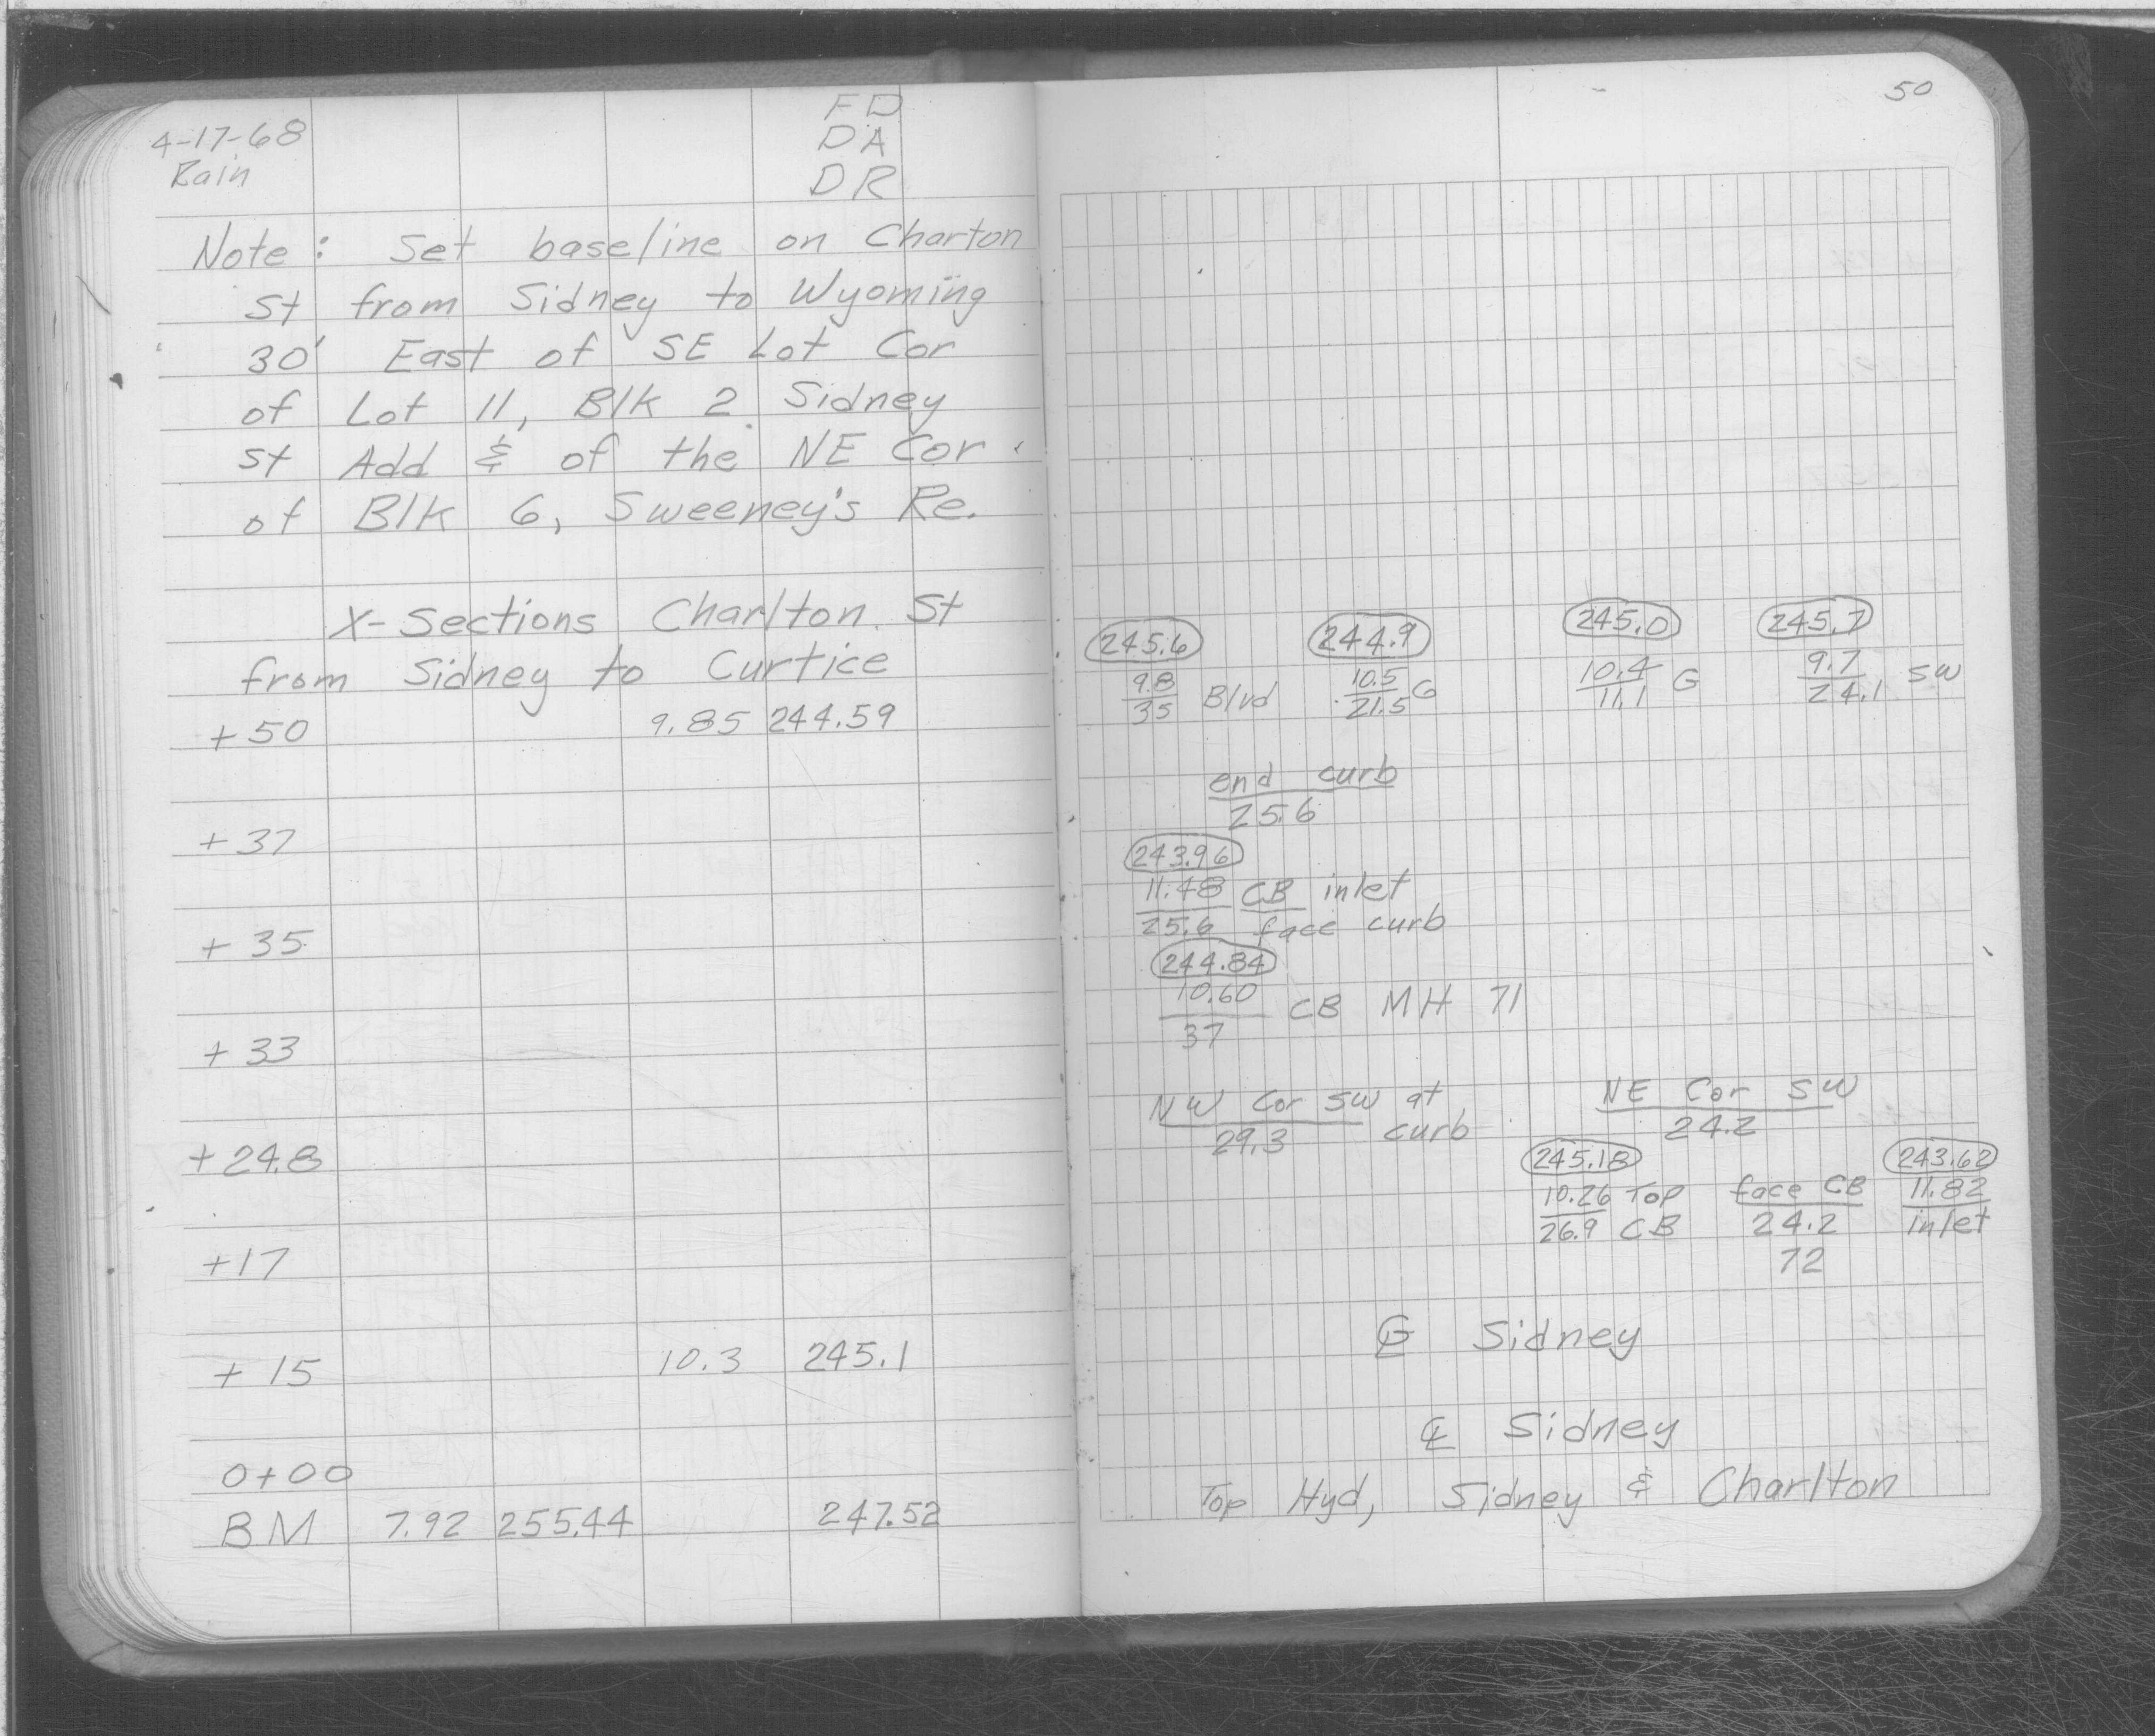 4-17-68
Rain
FD
DA
DR
Note: Set baseline on Charton
St from Sidney to Wyoming
30' East of SE Lot Cor
of Lot 11, Blk 2 Sidney
St Add & of the NE Cor
of Blk 6, Sweeney's Re.
X-Sections Charlton St
from Sidney to Curtice
+50 9.85 244.59
+37
+35
+33
+24.8
+17
+15 10.3 245.1
0+00
BM 7.92 255.44 247.52
50
245.6 244.9 245.0 245.7
9.8 10.5 10.4 9.7
35 Blvd 21.5 G 11.1 G 24.1 SW
end curb
25.6
243.96
11.48 CB inlet
25.6 face curb
244.84
10.60
37 CB MH 71
NW Cor SW at curb
29.3
NE Cor SW
24.2
245.18 243.62
10.26 Top face CB 11.82
26.9 CB 24.2 inlet
72
Sidney
℄ Sidney
Top Hyd, Sidney & Charlton